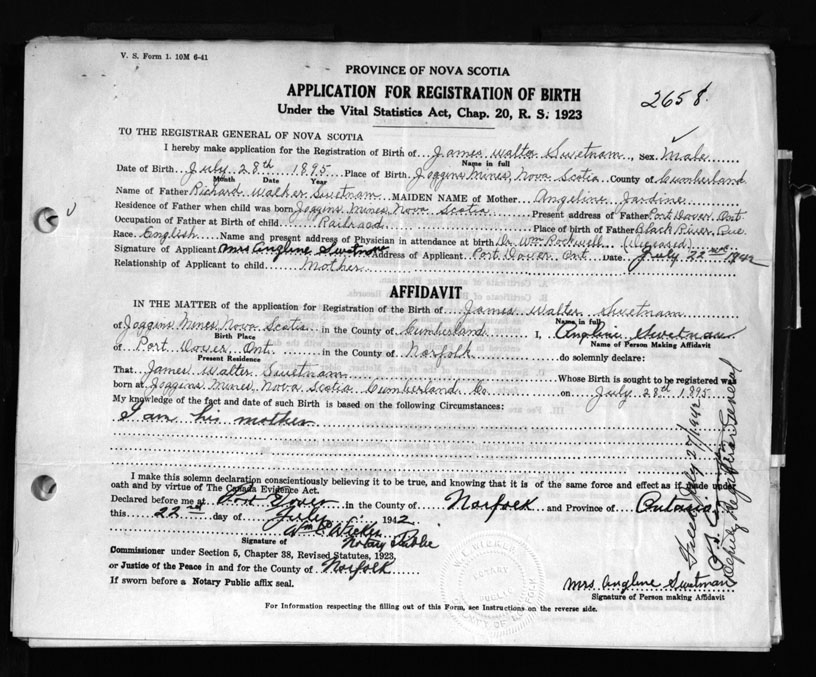 V. S. Form 1. 10M 6-41
PROVINCE OF NOVA SCOTIA
APPLICATION FOR REGISTRATION OF BIRTH
2658.
Under the Vital Statistics Act, Chap. 20, R. S. 1923
TO THE REGISTRAR GENERAL OF NOVA SCOTIA
I hereby make application for the Registration of Birth of James Walter Swetnam, Sex Male
Name in full
Date of Birth July 28th 1895 Place of Birth Joggins Mines, Nova Scotia County of Cumberland
Month Date Year
Name of Father Richard Walker Swetnam MAIDEN NAME of Mother Angeline Jardine
Residence of Father when child was born Joggins Mines Nova Scotia Present address of Father Port Dover Ont
Occupation of Father at Birth of child Railroad Place of birth of Father Black River Que
Race English Name and present address of Physician in attendance at birth Dr. Wm Rockwell (deceased)
Signature of Applicant Mrs Angline Swetnam Address of Applicant Port Dover Ont Date July 22nd 1942
Relationship of Applicant to child Mother
AFFIDAVIT
IN THE MATTER of the application for Registration of the Birth of James Walter Swetnam
Name in full
of Joggins Mines Nova Scotia in the County of Cumberland I, Angline Swetnam
Birth Place Name of Person Making Affidavit
of Port Dover Ont. in the County of Norfolk do solemnly declare:
Present Residence
That James Walter Swetnam Whose Birth is sought to be registered was
born at Joggins Mines Nova Scotia Cumberland Co on July 28th 1895
My knowledge of the fact and date of such Birth is based on the following Circumstances:
I am his mother
I make this solemn declaration conscientiously believing it to be true, and knowing that it is of the same force and effect as if made under
oath and by virtue of The Canada Evidence Act.
Declared before me at Port Dover in the County of Norfolk and Province of Ontario
this 22nd day of July 1942
Notary Public
Signature of
Commissioner under Section 5, Chapter 38, Revised Statutes, 1923,
or Justice of the Peace in and for the County of Norfolk
If sworn before a Notary Public affix seal.
Mrs Angline Swetnam
Signature of Person making Affidavit
For Information respecting the filling out of this Form, see Instructions on the reverse side.
NOTARY
PUBLIC
July 27/1942
Deputy Registrar General